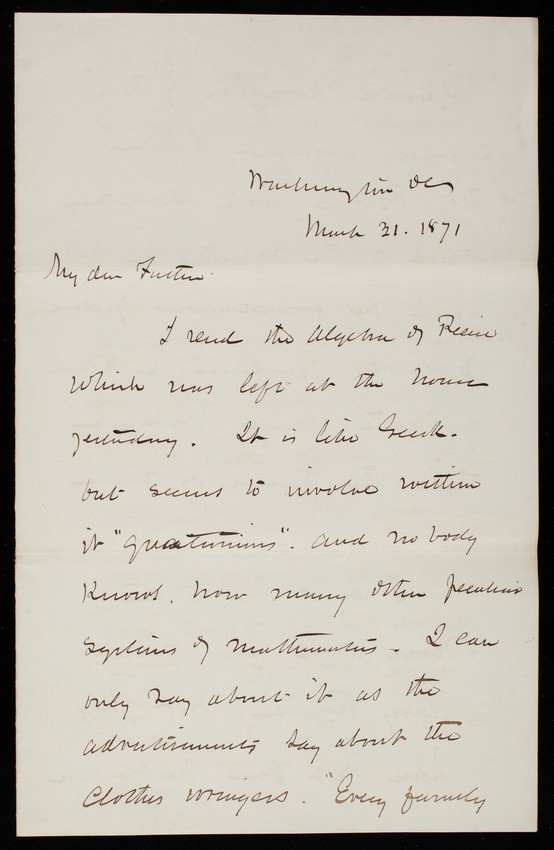 Washington DC
March 21. 1871
My dear Father.
I send the Algebra of Peirce
which was left at the house
yesterday. It is like Greek.
but seems to involve within
it "quaternions". and nobody
knows. how many other peculiar
systems of mathematics. I can
only say about it as the
advertisements say about the
Clothes wringers. "Every family